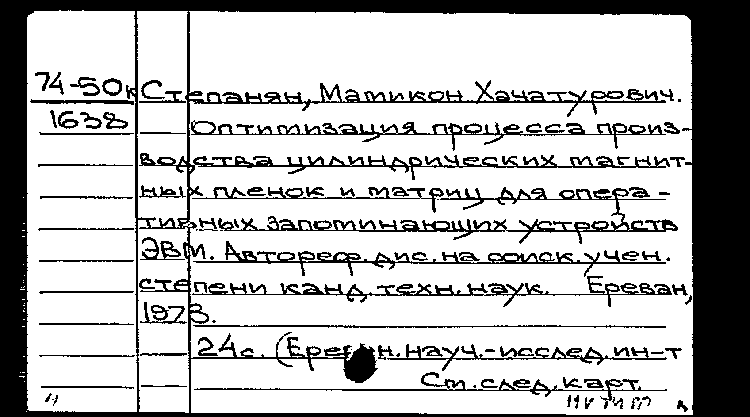 74-50к Степанян, Мамикон Хачатурович.
1638 Оптимизация процесса произ-
водства цилиндрических магнит-
ных пленок и матриц для опера-
тивных запоминающих устройств
ЭВМ. Автореф. дис. на соиск. учен.
степени канд. техн. наук. Ереван,
1973.
24 с. (Ереван. науч.-исслед. ин-т
См. след. карт.